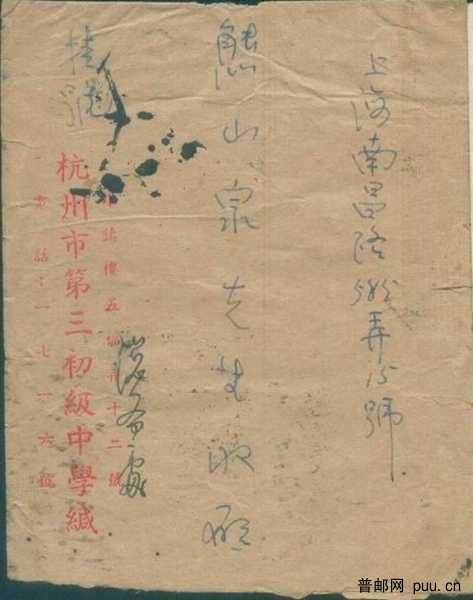 上海南昌路弄15號
熊山泉先生收啟
鎮樓五福弄十二號
杭州市第三初級中學緘
電話：一七一六號
挂號
普邮网 puu.cn